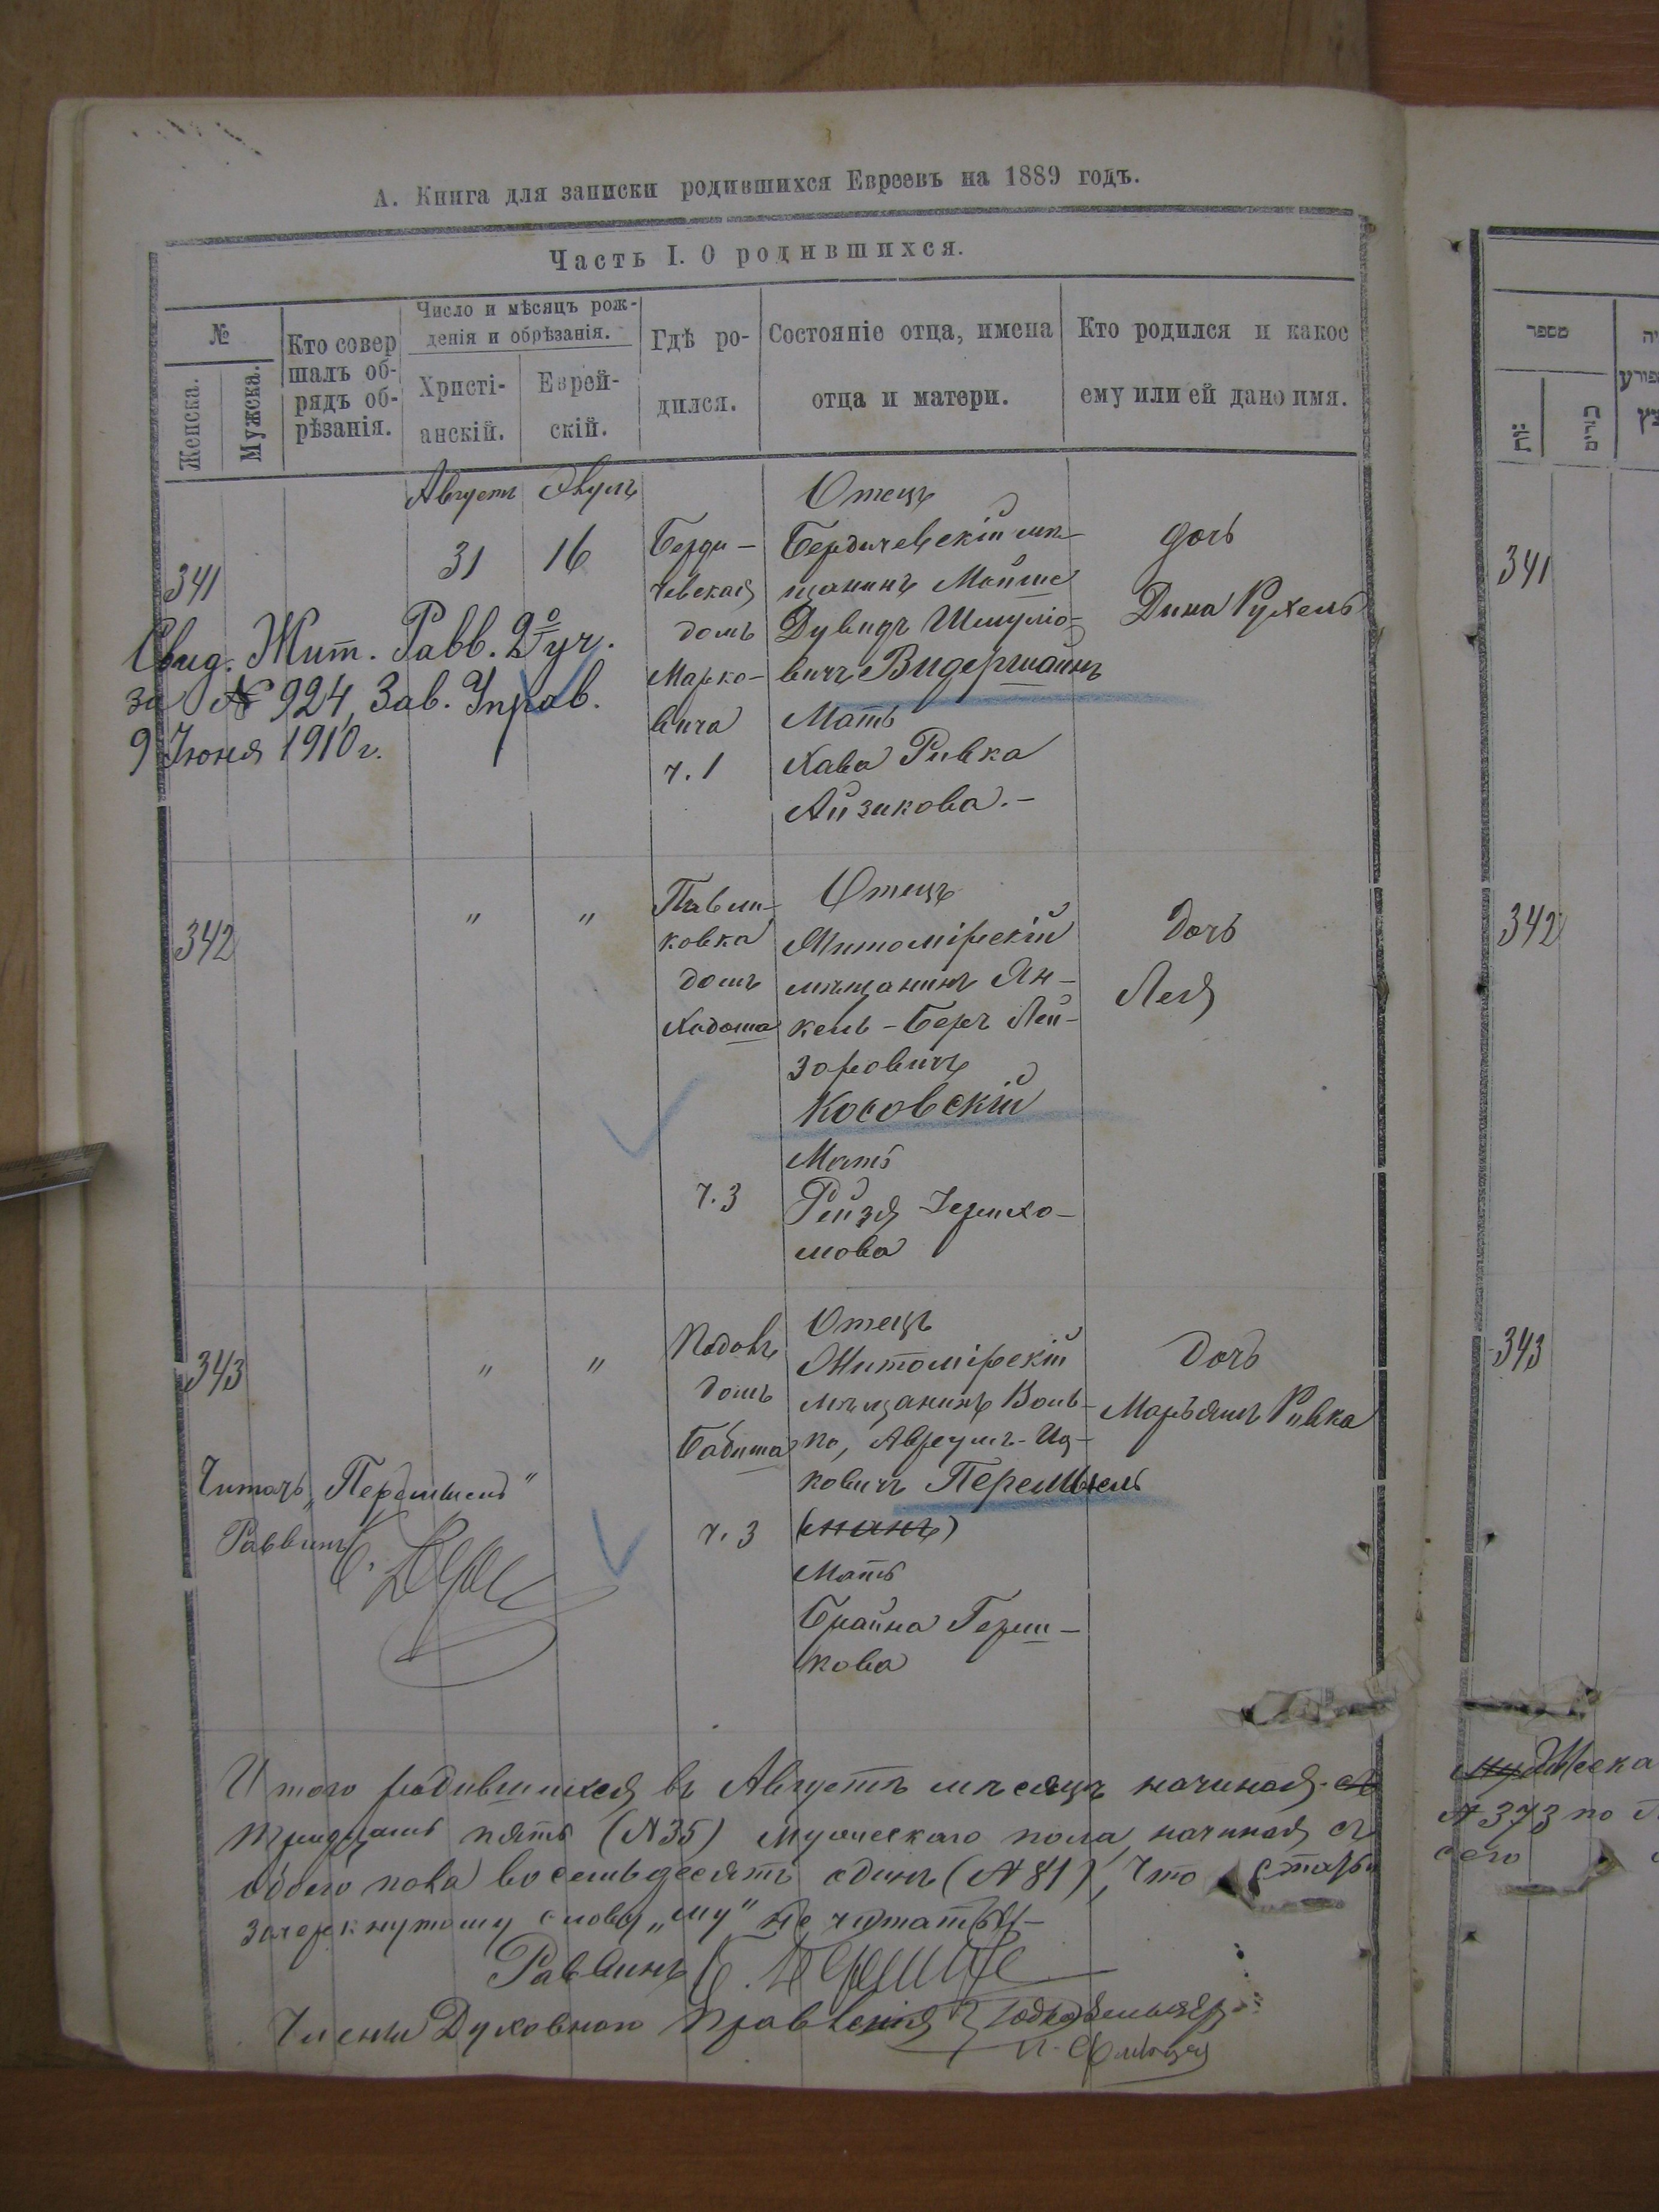 А. Книга для записки родившихся Евреевъ на 1889 годъ.
Часть I. О родившихся.
№
Женска.
Мужска.
Кто совер
шалъ об-
рядъ об-
рѣзанія.
Число и мѣсяцъ рож-
денія и обрѣзанія.
Христі-
анскій.
Еврей-
скій.
Гдѣ ро-
дился.
Состояніе отца, имена
отца и матери.
Кто родился и какое
ему или ей дано имя.
341
Августъ
31
16
Берди-
чевская
домъ
Марко-
вича
ч. 1
Отецъ
Бердичевскій мѣ-
щанинъ Мойше
Дувидъ Шмуліо-
вичъ Видерманъ
Мать
Хава Ривка
Айзикова.-
дочь
Дина Рухель
Свид. Жит. Равв. 2º уч.
за № 924, Зав. Управ.
9 Іюня 1910 г.
342
"
"
Павли-
ковка
домъ
Ходоша
ч. 3
Отецъ
Житомірскій
мѣщанинъ Ян-
кель-Беръ Лей-
зоровичъ
Косовскій
Мать
Рейзя
мова
Дочь
Лея
343
"
"
Подолъ
домъ
ч. 3
Отецъ
Житомірскій
мѣщанинъ Воль-
ко, Аврумъ-Иц-
ковичъ Перемысль
Мать
Брайна Герш-
кова
Дочь
Марьямъ Ривка
Читать „
"
Раввинъ
Итого родившихся въ Августѣ мѣсяцѣ начиная съ
тридцать пять (№35) мужескаго пола, начиная съ
обоего пола восемьдесятъ одинъ (№ 81), Что
зачеркнутому слову „му" не читать.-
Раввинъ
Члены Духовнаго Правленія
מספר
341
342
343
№ 373 по
сего